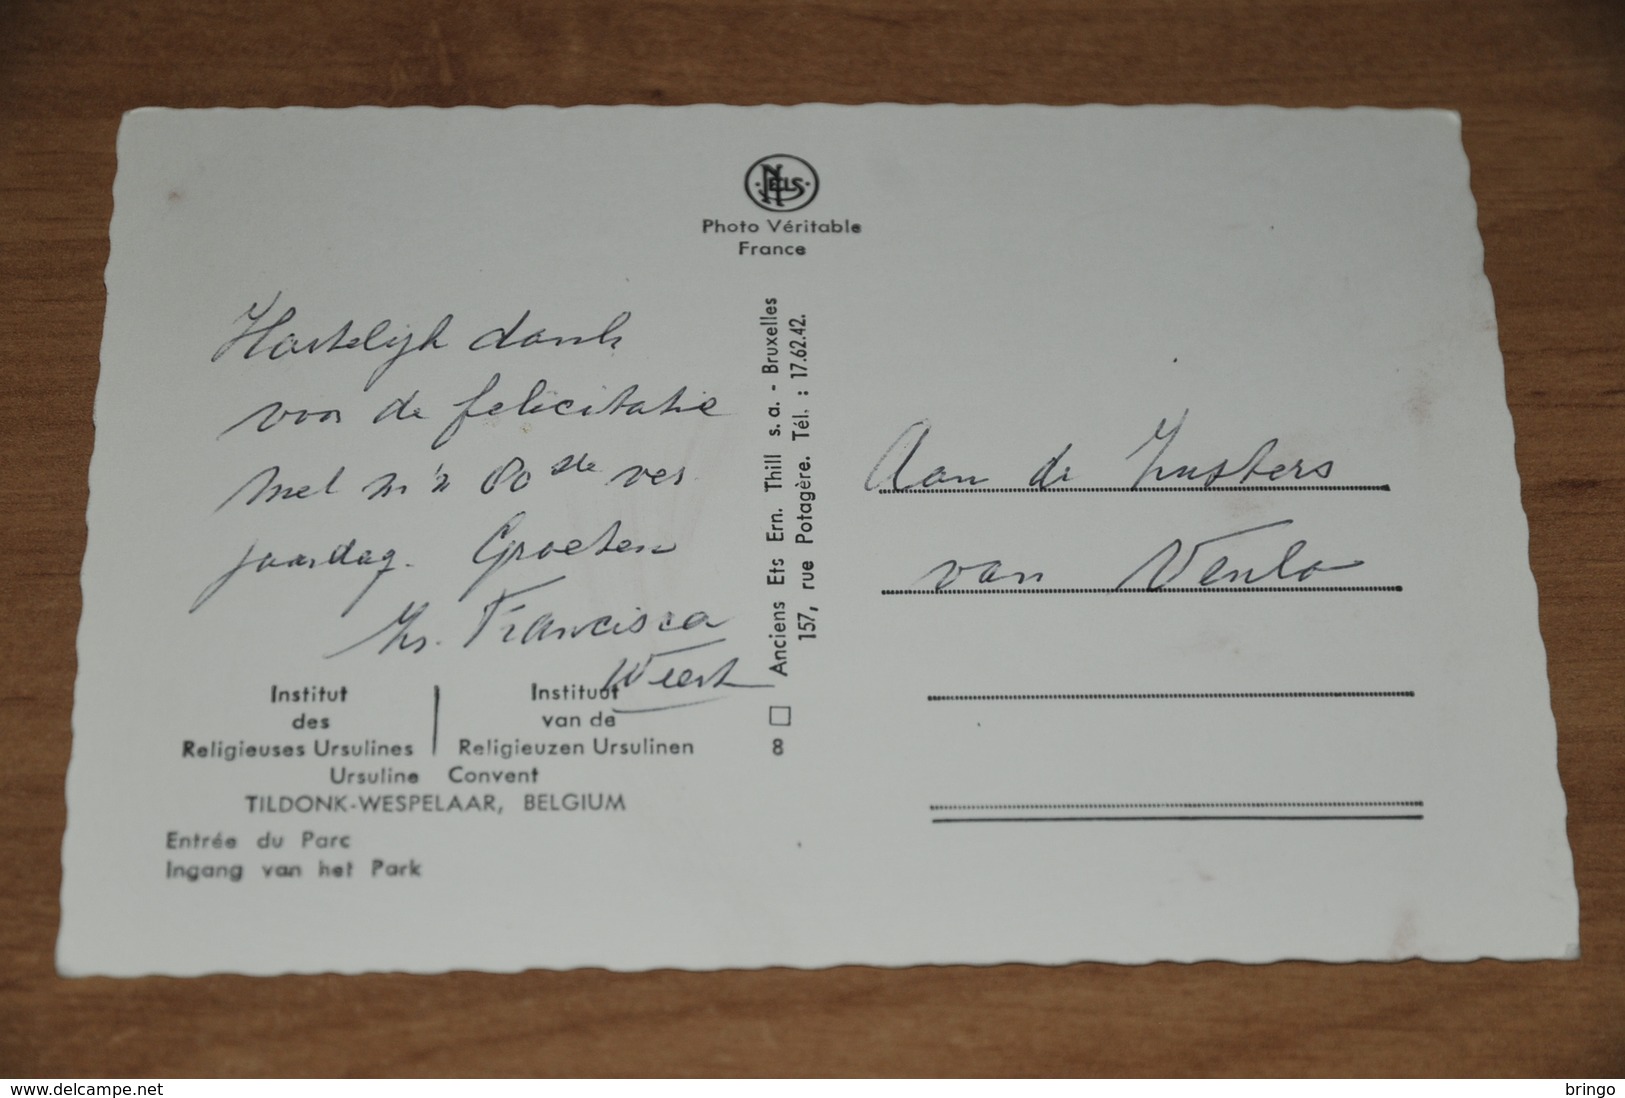 NELS
Photo Véritable
France
Hartelijk dank
voor de felicitatie
met m'n 80ste ver
jaardag. Groeten
Zr. Francisca
Weert
Anciens Ets Ern. Thill s.a. - Bruxelles
157, rue Potagère. Tél. : 17.62.42.
8
Aan de Zusters
van Venlo
Institut
des
Religieuses Ursulines
Instituut
van de
Religieuzen Ursulinen
Ursuline Convent
TILDONK-WESPELAAR, BELGIUM
Entrée du Parc
Ingang van het Park
www.delcampe.net
bringo